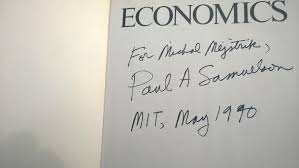 ECONOMICS
For Michal Mejstrik,
Paul A Samuelson
MIT, May 1990